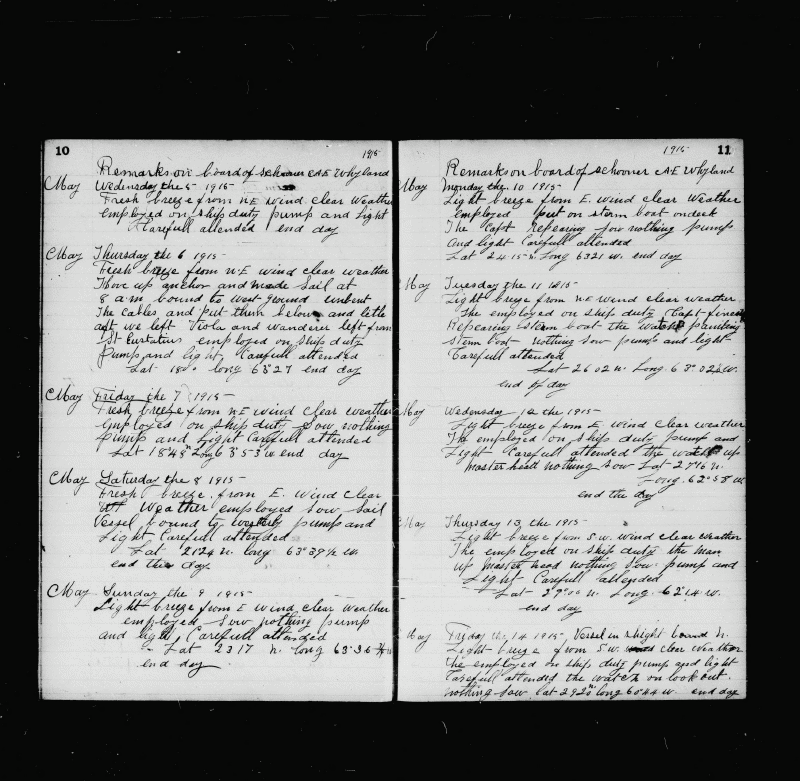 10
1915
Remarks on board of Schooner A E Whyland
May Wedensday the 5 1915
Fresh breeze from N E wind clear Weather
employed on ship duty pump and Light
Carefull attended end day
May Thursday the 6 1915
Fresh breeze from N E wind clear weather
Hove up anchor and made Sail at
8 am bound to west ground unbent
The cables and put them below and little
aft we left Viola and Wanderer left from
St Eurtatius employed on Ship duty
Pump and light Carefull attended
Lat 18 long 63°27 end day
May Friday the 7 1915
Fresh breeze from N E wind clear weather
employed on Ship duty Sow nothing
pump and Light Carefull attended
Lat 18 48 N Long 63°53 W end day
May Saturday the 8 1915
Fresh breeze from E. wind clear
Weather employed Sow Sail
Vessel bound to westerly pump and
Light Carefull attended
Lat 21 24 N. long 63°39½ W.
end the day
May Sunday the 9 1915
Light breeze from E wind clear weather
employed Sow nothing pump
and light Carefull attended
Lat 23 17 N. long 63°36 ¾ W
end day
1915
11
Remarks on board of Schooner A E Whyland
May Monday the 10 1915
Light breeze from E. wind clear Weather
employed put on stern boat on deck
The Capt Repearing Sow nothing pump
and light Carefull attended
Lat 24 15 N Long 63 21 W. end day
May Tuesday the 11 1915
Light breeze from N E wind clear weather
The employed on Ship duty Capt finish
Repearing stern boat the watch painting
stern boat nothing Sow pump and light
Carefull attended
Lat 26 02 N. Long. 63°02½ W.
end of day
May Wedensday 12 the 1915
Light breeze from E wind clear weather
The employed on Ship duty pump and
Light Carefull attended the watch up
master head nothing Sow Lat 27 16 N.
Long. 62°58 W
end the day
May Thursday 13 the 1915
Light breeze from S W. wind clear weather
The employed on ship duty the man
up master head nothing Sow. pump and
Light Carefull attended
Lat 29°00 N. Long. 62°14 W.
end day
May Friday the 14 1915, Vessel in sight bound N.
Light breeze from S W. clear weather
the employed on ship duty pump and light
Carefull attended the watch on look out.
nothing Sow. Lat 29 20 N long 60°44 W. end day